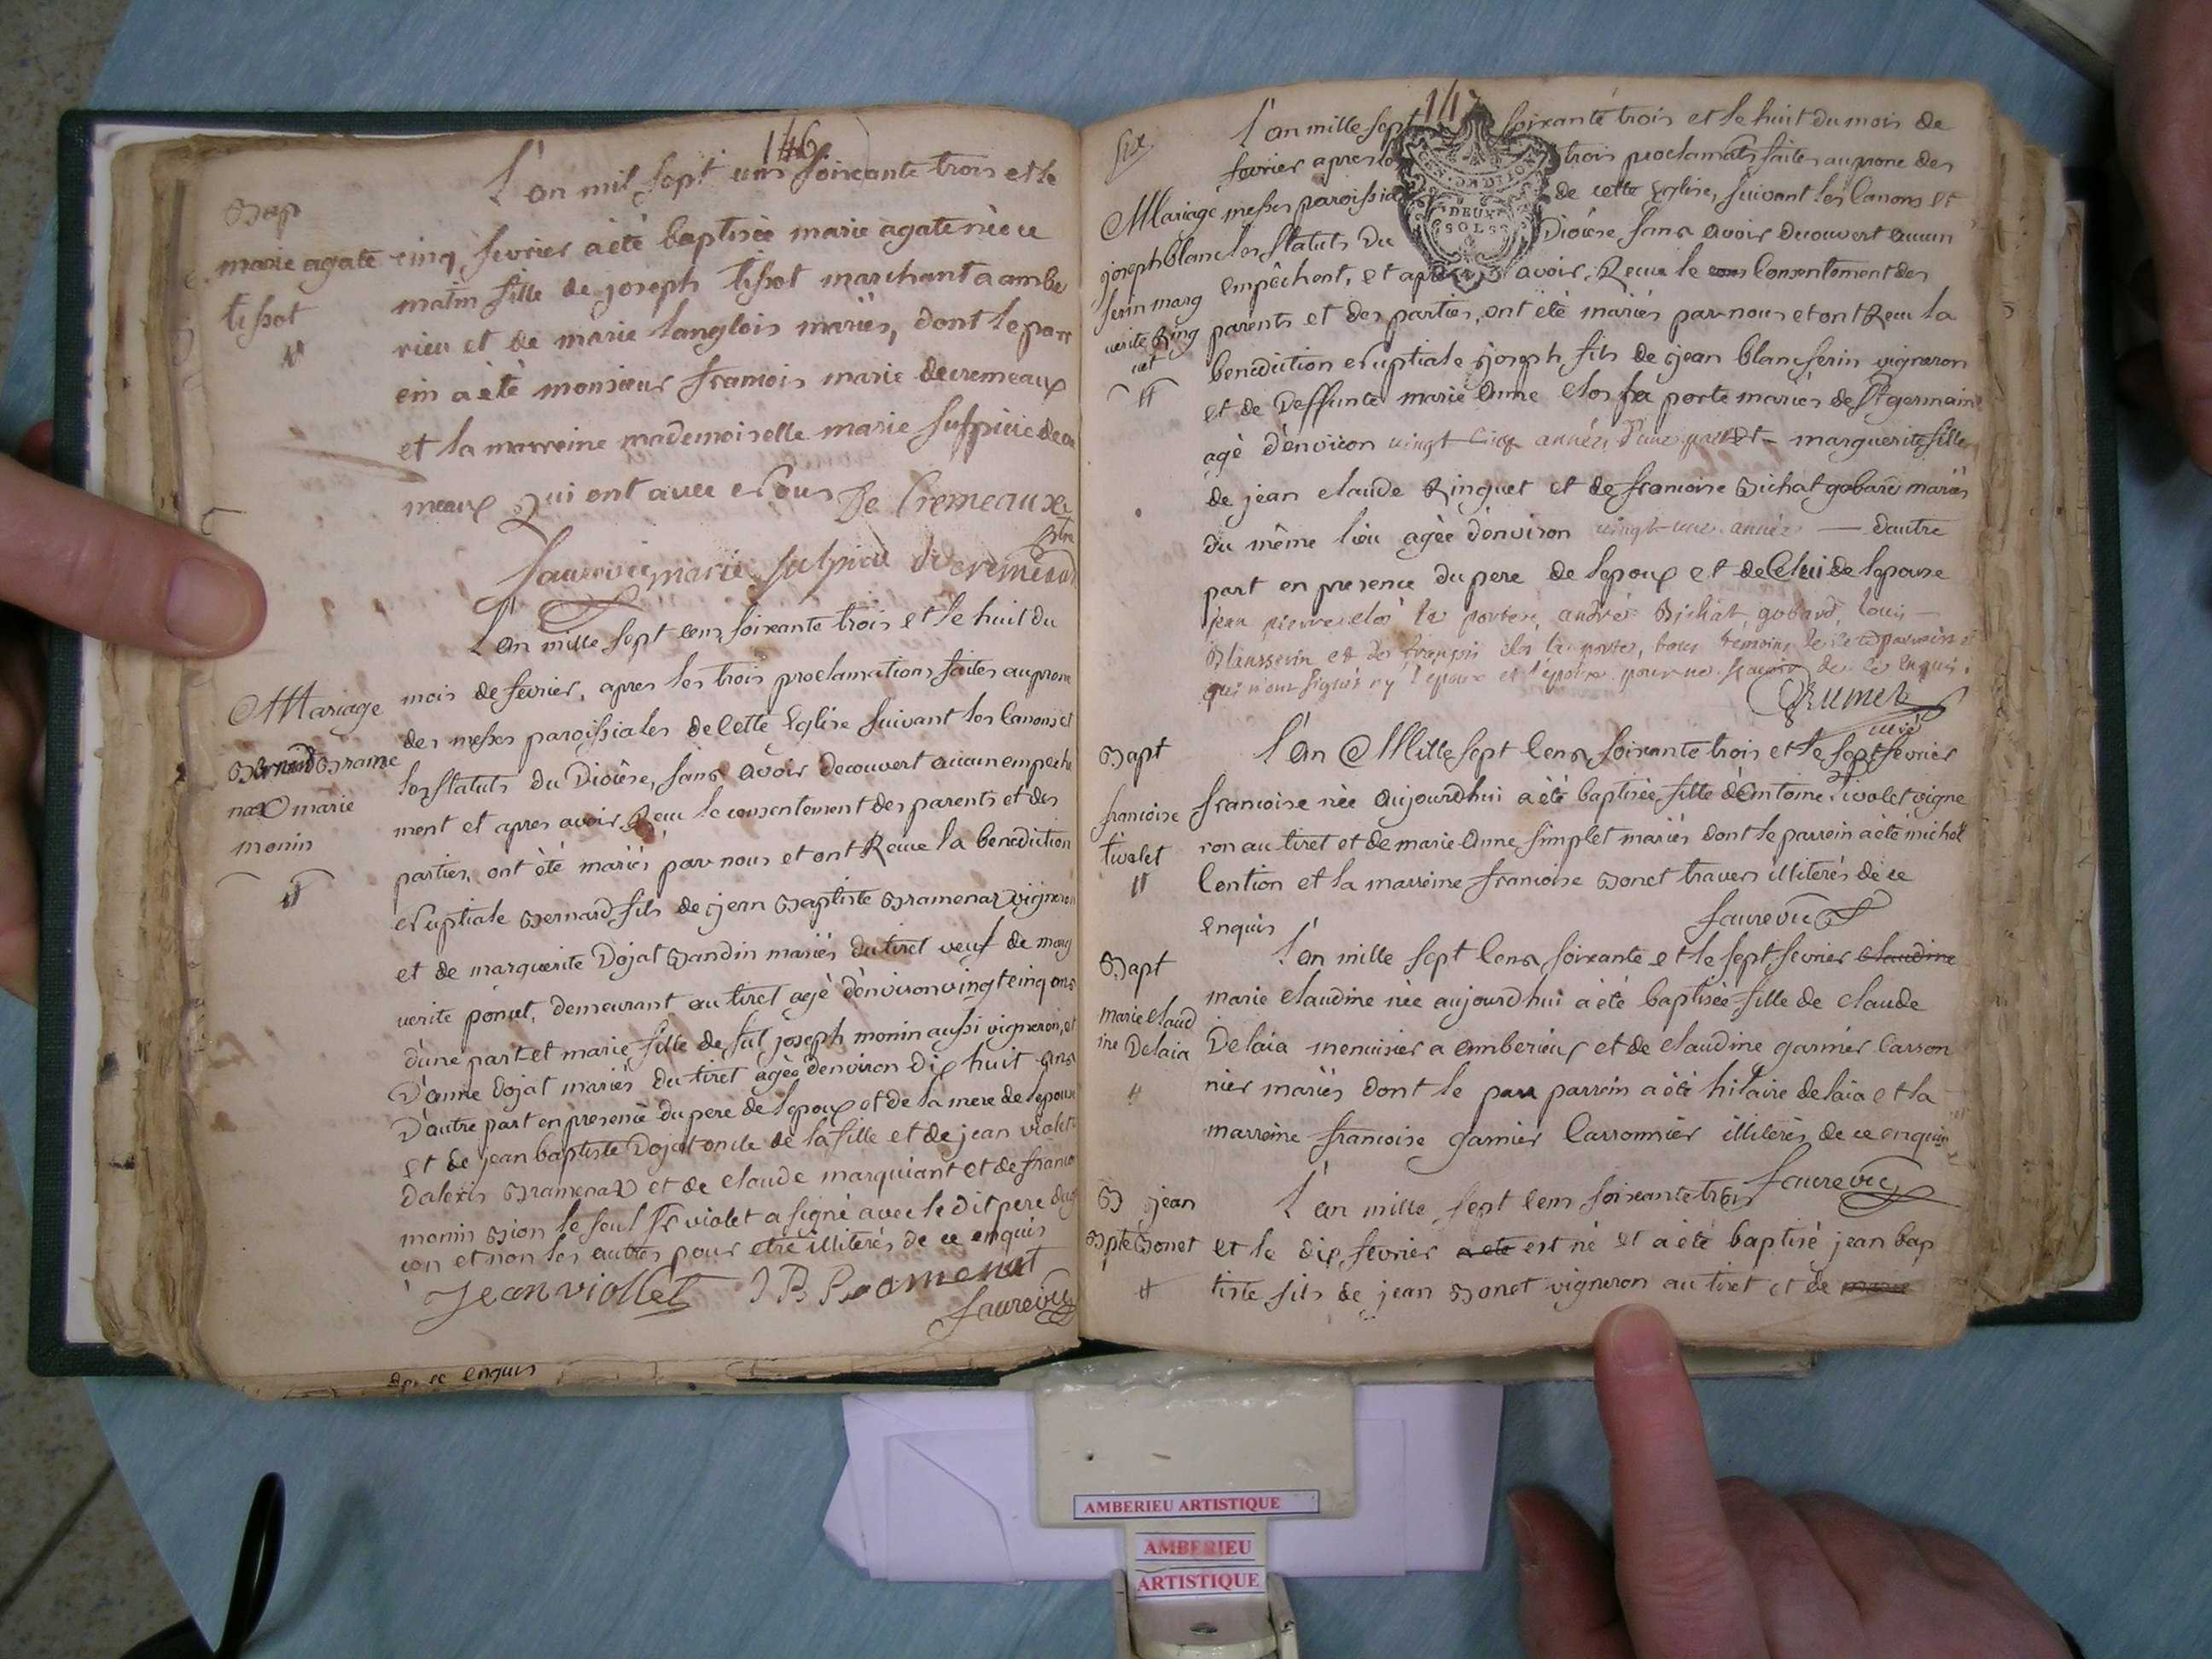 146.
L'an mil sept cens soixante trois et le
Bap
marie agate
tissot
cinq fevrier a été baptisée marie agate née ce
matin fille de joseph tissot marchant a ambe
rieu et de marie langlois mariés, dont le parr
ein a été monsieur francois marie decremeaux
et la marreine mademoiselle marie sulpicie decre
meaux qui ont avec Nous De Cremeaux
faure vic marie sulpicie de cremeaux
L'an mille sept cens soixante trois et le huit du
Mariage
Bernard Brame
naz marie
monin
mois de fevrier, apres les trois proclamations faites au prone
des messes paroissiales de Cette Eglise suivant les Canons et
les statuts du Diocèse, sans avoir decouvert aucun empeche
ment et apres avoir Receu le consentement des parents et des
parties, ont été mariés par nous et ont Receue la benediction
Nuptiale Bernard fils de jean Baptiste Bramenaz vigneron
et de marguerite Dojat Bandin mariés du tiret veuf de marg
uerite poncet, demeurant au tiret agé d'environ vingt cinq ans
d'une part et marie fille de fut joseph monin aussi vigneron, et
D'anne Dojat mariés du tiret agée d'environ Dix huit ans
D'autre part en presence du pere de l'epoux et de la mere de l'epouse
et de jean baptiste Dojat oncle de la fille et de jean violet
D'alexis Bramenaz et de claude marquiant et de franco
monin Bion le seul Sr violet a signé avec le dit pere du g
con et non les autres pour etre illiterés de ce enquis
Jean viollet J B Bramenat
faure vic
de ce enquis
147
L'an mille sept soixante trois et le huit du mois de
fevrier apres les trois proclamats faites au prone des
Mariage
joseph blanc
serin marg
uerite Ring
uet
messes paroissia de cette Eglise, suivant les Canons et
les statuts du Diocèse sans avoir decouvert aucun
DEUX
SOLS
empêchent, et après avoir Receue le Consentement des
parents et des parties, ont été mariés par nous et ont Receu la
benediction Nuptiale joseph fils de jean blancserin vigneron
et de Deffunte marie Anne Clos la porte mariés de St germain
agé d'environ vingt cinq années d'une part et marguerite fille
de jean claude Ringuet et de francoise Bichat gobard mariés
du même lieu agée d'environ vingt une année — d'autre
part en presence du pere de l'epoux et de Celui de l'epouse
jean pierre clos la porte, andré Bichat gobard, louis
Blansserin et de françois clos la porte, tous temoins
qui n'ont signés ny l'epoux et l'epouse pour ne sçavoir de ce enquis.
Grumet
curé
Bapt
francoise
tivolet
L'an Mille sept Cens soixante trois et le sept fevrier
francoise née aujourdhui a été baptisée fille d'Antoine tivolet vigne
ron au tiret et de marie Anne simplet mariés dont le parrein a été michel
Cention et la marreine francoise Bonet travers illiterés de ce
enquis
faure vic
Bapt
marie claud
ine Delaia
L'an mille sept Cens soixante et le sept fevrier claudine
marie claudine née aujourdhui a été baptisée fille de claude
Delaia menuisier a amberieux et de claudine garnier Carron
nier mariés dont le parr parrein a été hilaire delaia et la
marreine francoise garnier Carronnier illiterés de ce enquis
faure vic
B jean
Bpte Bonet
L'an mille sept Cens soixante trois
et le dix fevrier a été est né et a été baptisé jean bap
tiste fils de jean Bonet vigneron au tiret et de marie
AMBERIEU ARTISTIQUE
AMBERIEU
ARTISTIQUE